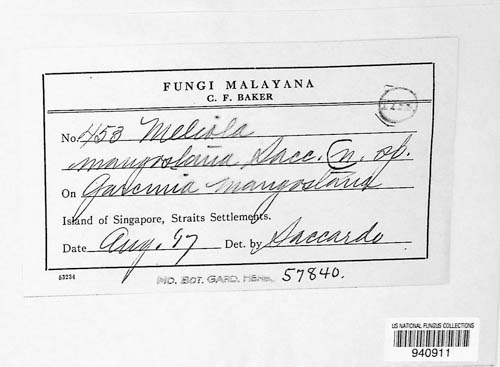 FUNGI MALAYANA
C. F. BAKER
No. 453 Meliola
mangostana Sacc. n. sp.
On Garcinia mangostana
Island of Singapore, Straits Settlements.
Date Aug. '17 Det. by Saccardo
53234
MO. BOT. GARD. HERB. 57840.
US NATIONAL FUNGUS COLLECTIONS
940911